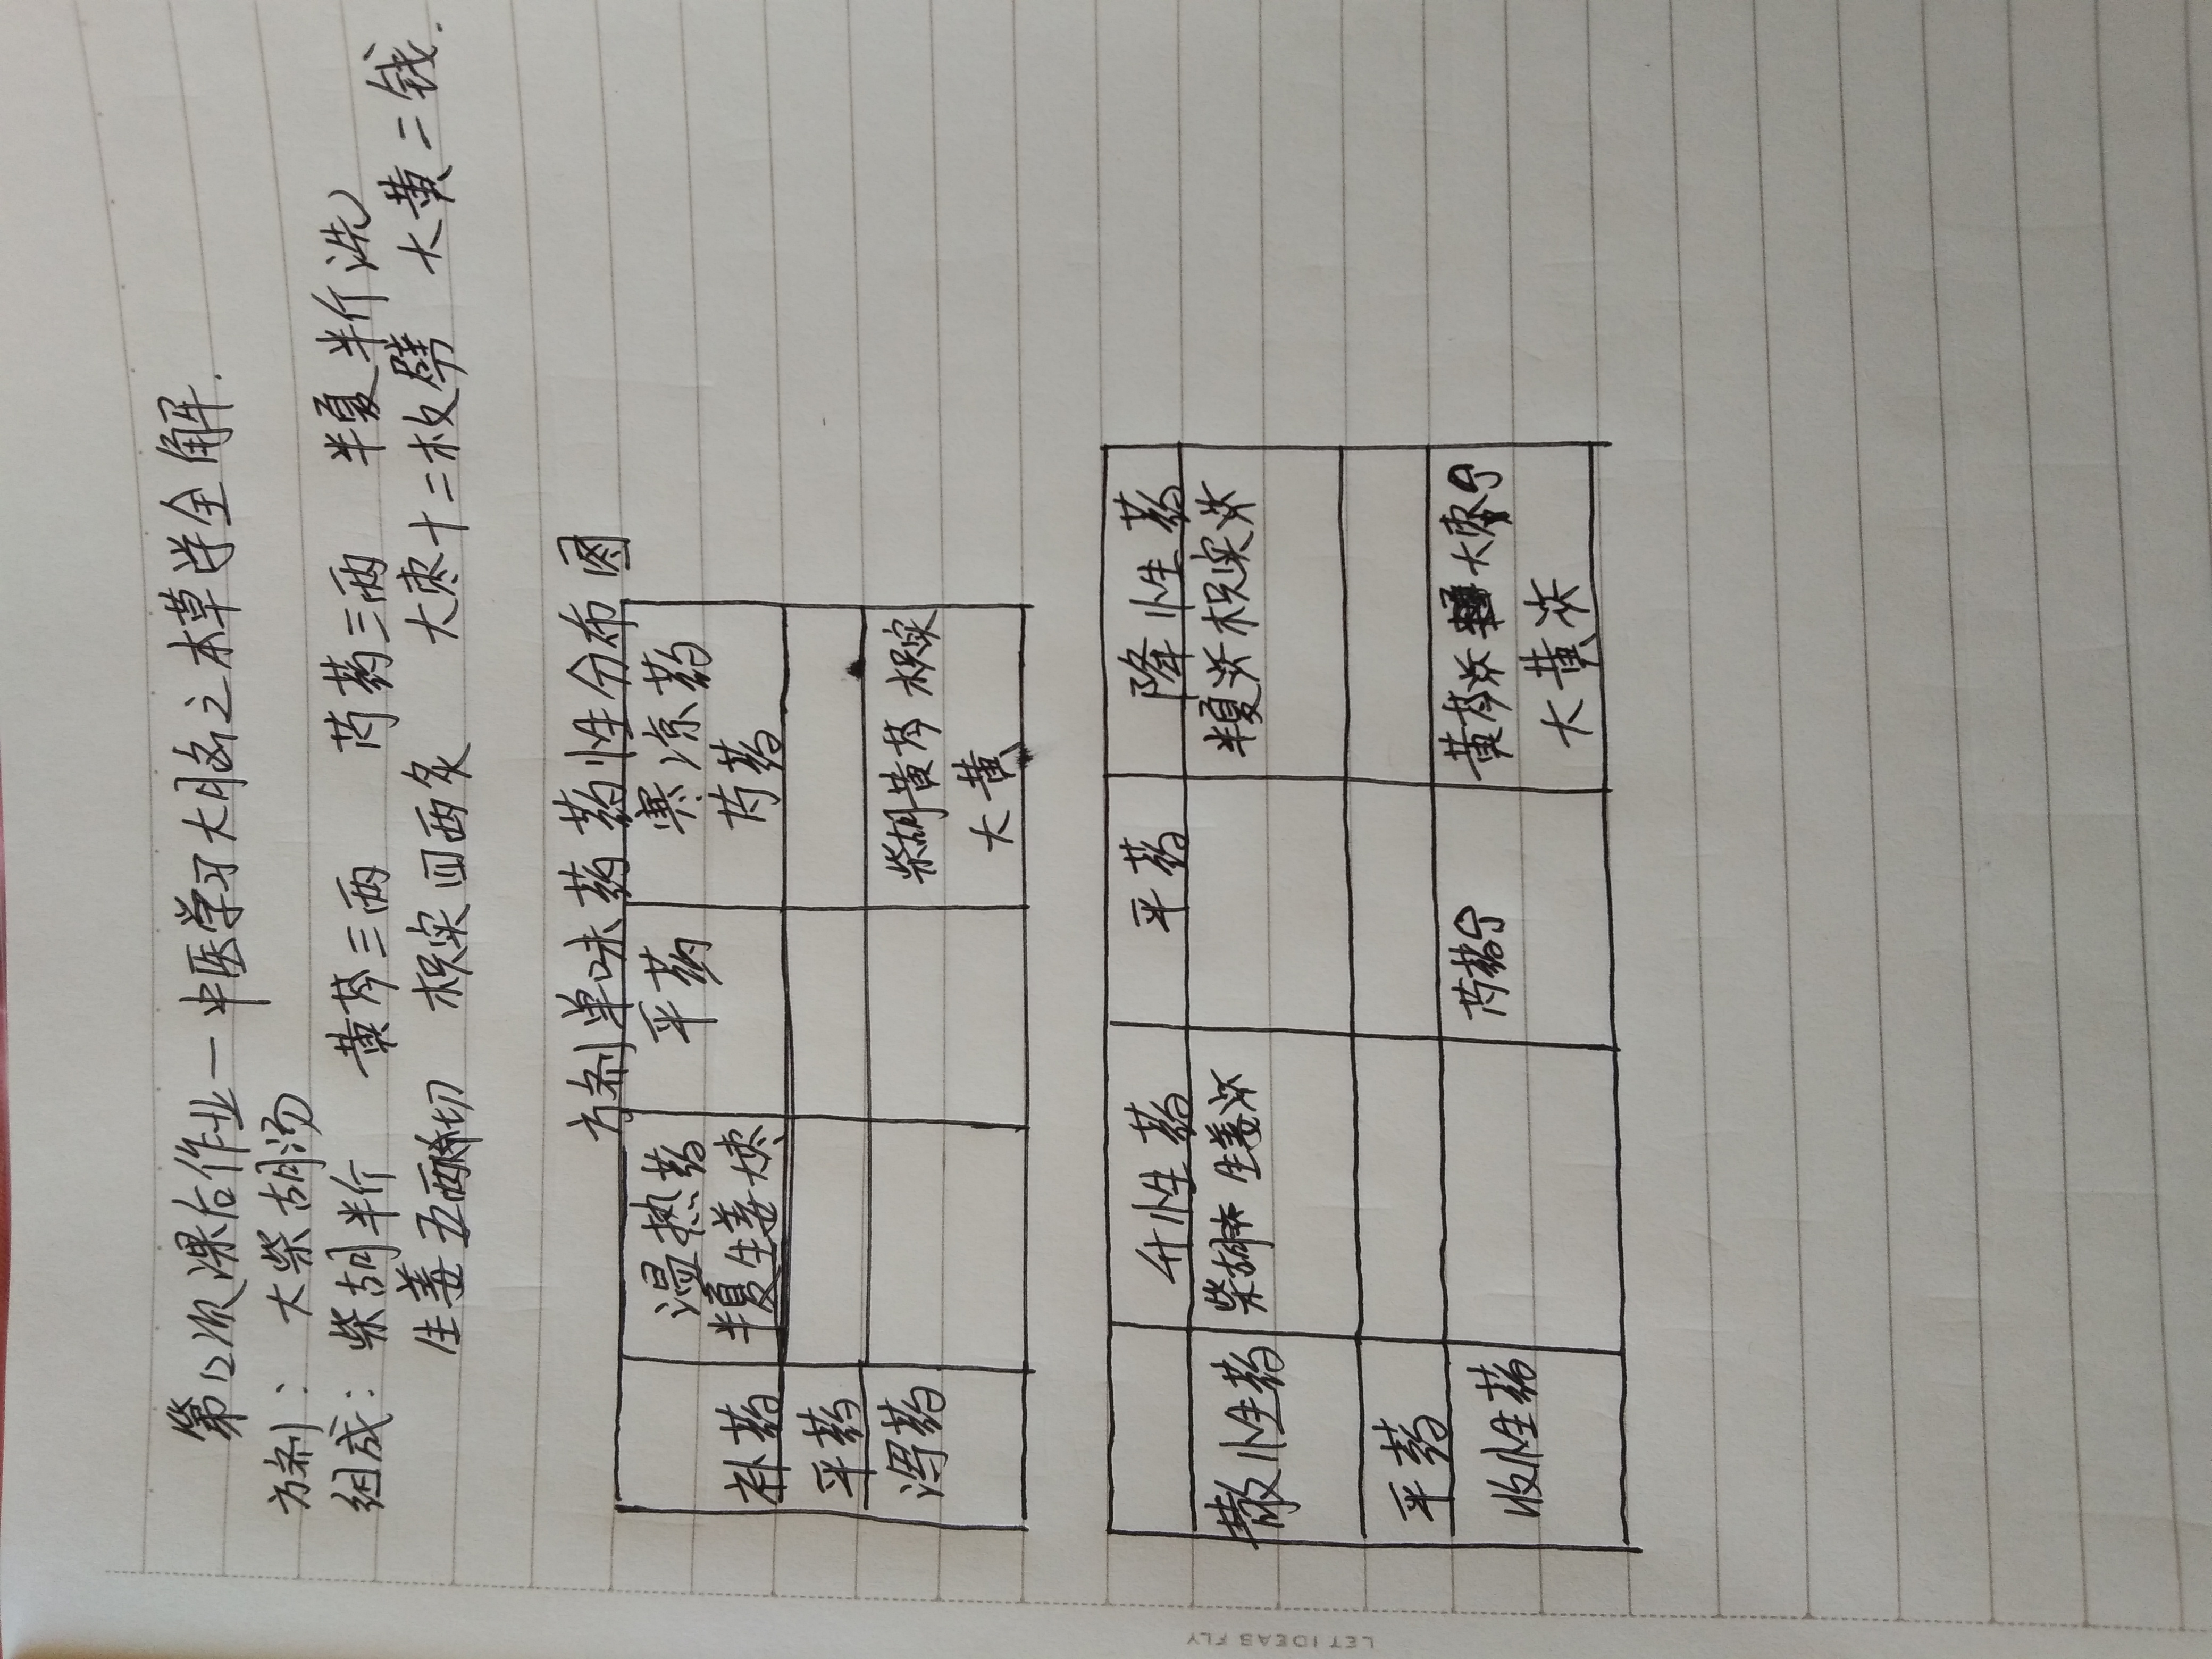 第12次课后作业一中医学习大成之本草学全解.
方剂: 大柴胡汤
组成: 柴胡半斤 黄芩三两 芍药三两 半夏半斤洗
生姜五两切 枳实四两炙 大枣十二枚擘 大黄二钱.
方剂单味药药性分布图
温热药 平药 寒凉药
补药 半夏生姜大枣 芍药
平药
泻药 柴胡黄芩 枳实
大黄
升性药 平药 降性药
散性药 柴胡 生姜 半夏 枳实
平药
收性药 芍药 黄芩 大枣
大黄
LET IDEAS FLY